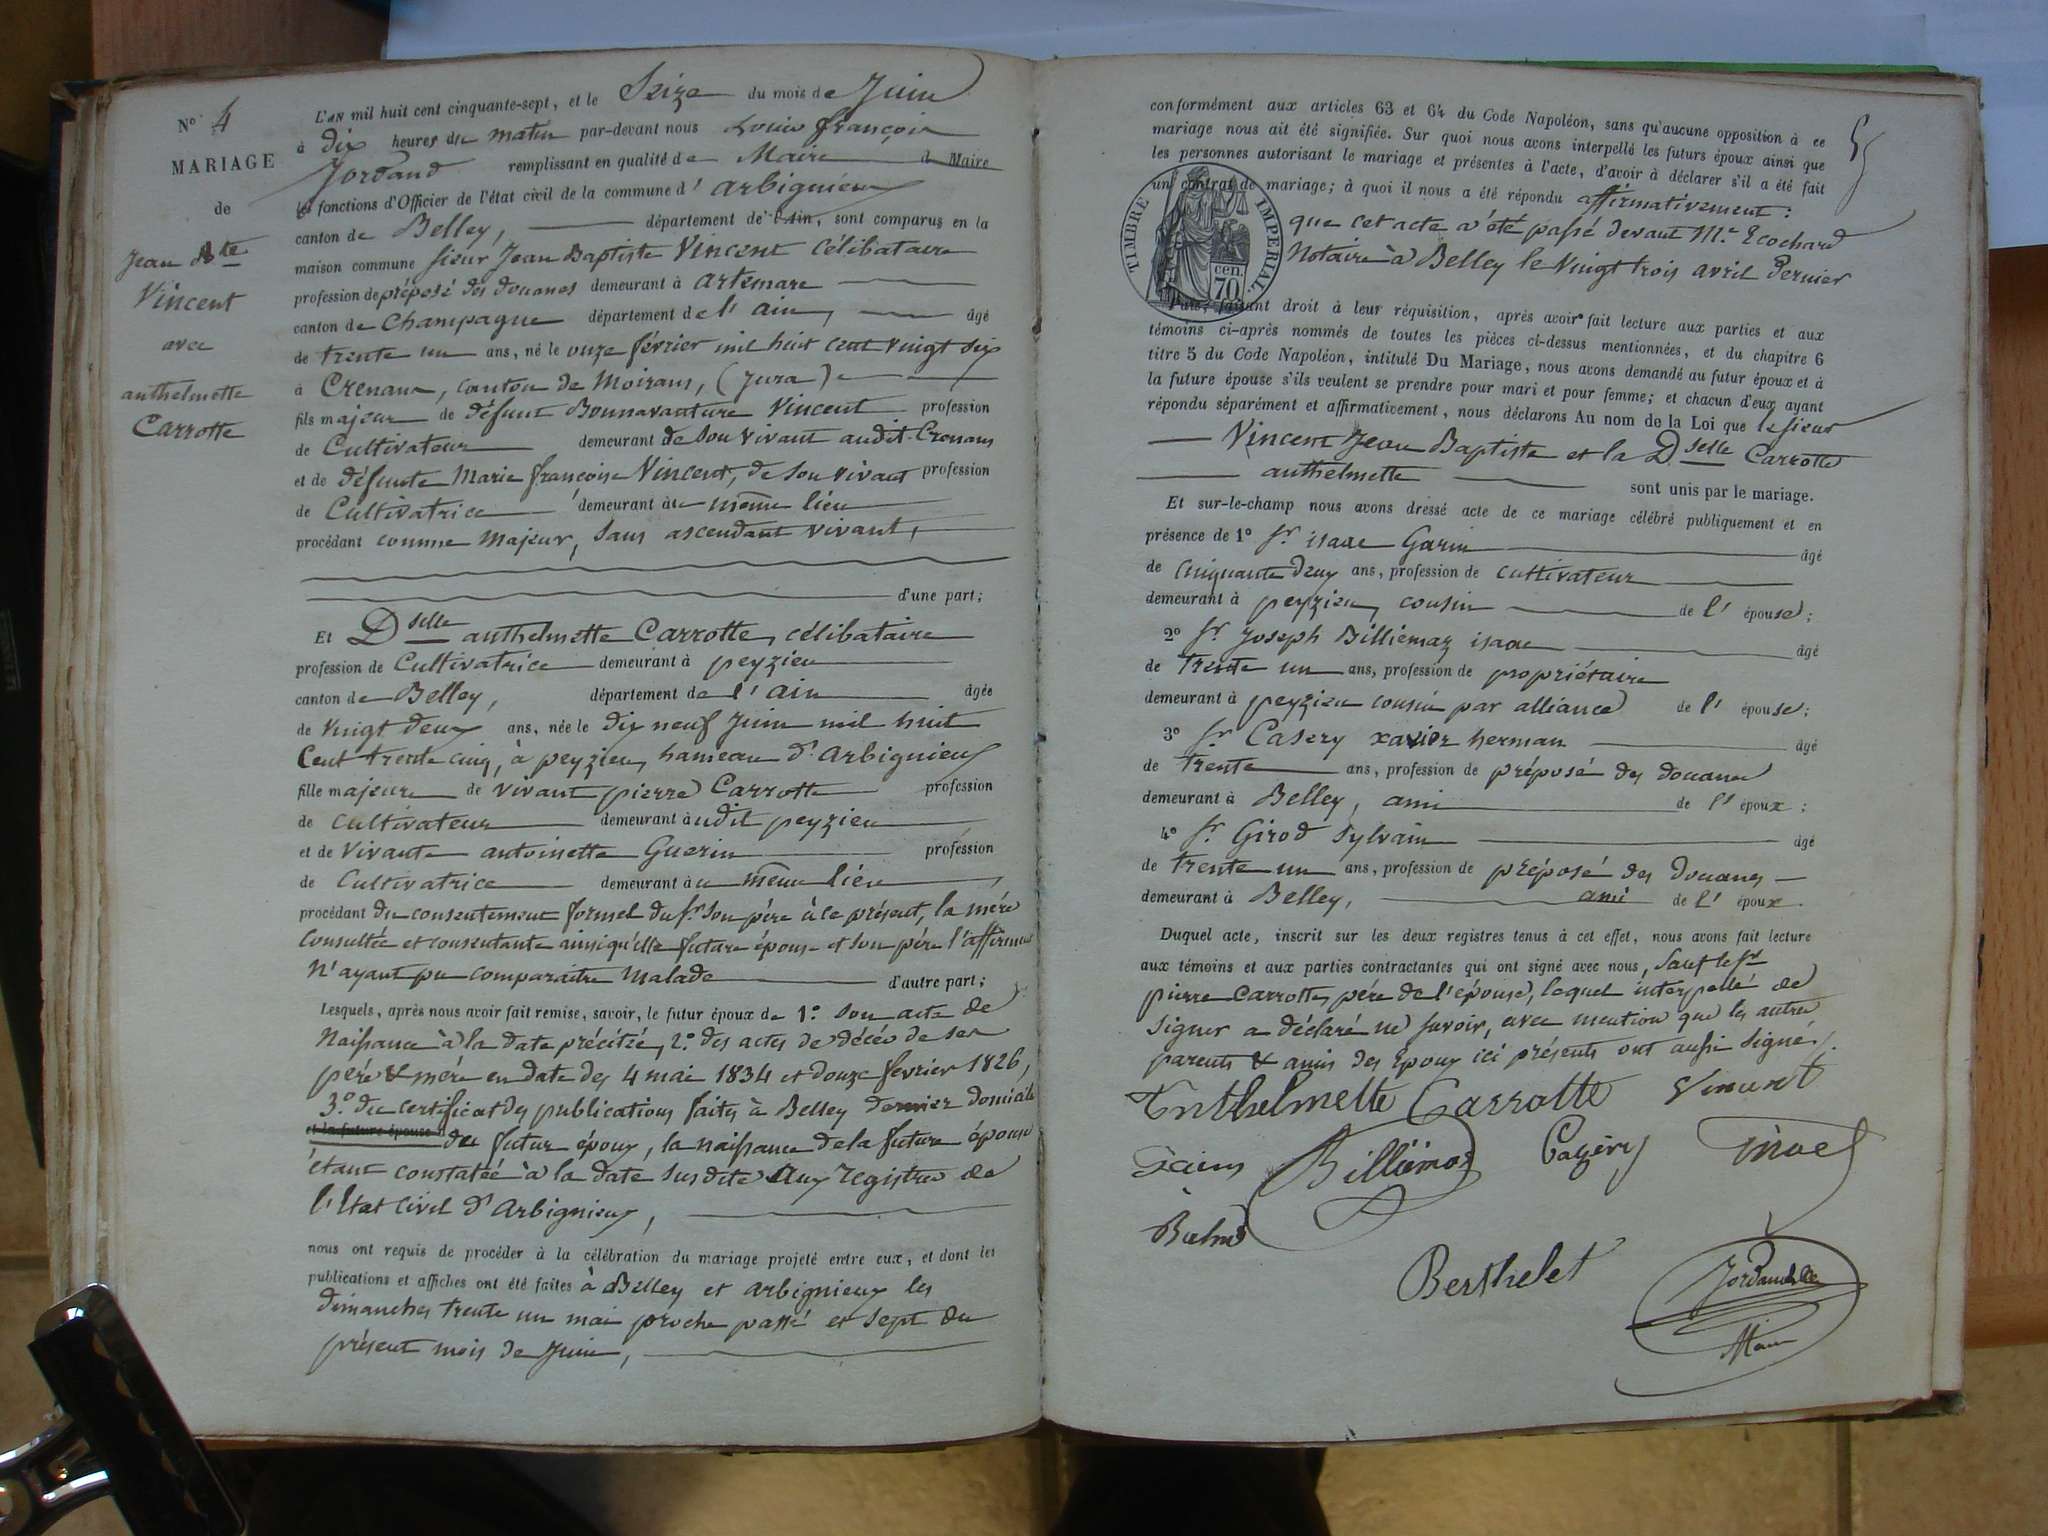 N° 4
MARIAGE
de
Jean Bte
Vincent
avec
anthelmette
Carrotte
L'AN mil huit cent cinquante-sept, et le Seize du mois de Juin
à dix heures du matin par-devant nous Louis françois
Jordand remplissant en qualité de Maire d Maire
les fonctions d'Officier de l'état civil de la commune d'arbignieux
canton de Belley, département de l'Ain, sont comparus en la
maison commune sieur Jean Baptiste Vincent célibataire
profession de préposé des douanes demeurant à artemare
canton de Champagne département de l'ain, âgé
de trente un ans, né le onze février mil huit cent vingt six
à Crenans, canton de Moirans, (Jura)
fils majeur de défunt Bonnavanture Vincent profession
de Cultivateur demeurant de son vivant audit Crenans
et de défunte Marie françoise Vincent, de son vivant profession
de Cultivatrice demeurant au même lieu
procédant comme majeur, sans ascendant vivant,
d'une part;
Et Dselle anthelmette Carrotte, célibataire
profession de Cultivatrice demeurant à peyzieu
canton de Belley, département de l'ain âgée
de vingt deux ans, née le dix neuf Juin mil huit
Cent trente cinq, à peyzieu, hameau d'Arbignieux
fille majeure de vivant pierre Carrotte profession
de cultivateur demeurant audit peyzieu
et de vivante antoinette Guerin profession
de Cultivatrice demeurant au même lieu
procédant du consentement formel du sr son père à ce présent, la mère
consultée et consentante ainsi qu'elle future épouse et son père l'affirme
n'ayant pu comparaître malade d'autre part;
Lesquels, après nous avoir fait remise, savoir, le futur époux de 1.° son acte de
naissance à la date précitée, 2.° des actes de décès de ses
père & mère en date des 4 mai 1834 et douze fevrier 1826,
3.° du certificat des publications faites à Belley dernier domicile
et la future épouse du futur époux, la naissance de la future épouse
étant constatée à la date susdite aux registres de
l'Etat Civil d'arbignieux,
nous ont requis de procéder à la célébration du mariage projeté entre eux, et dont les
publications et affiches ont été faites à Belley et arbignieux les
dimanches trente un mai proche passé et sept du
présent mois de Juin,
5
conformément aux articles 63 et 64 du Code Napoléon, sans qu'aucune opposition à ce
mariage nous ait été signifiée. Sur quoi nous avons interpellé les futurs époux ainsi que
les personnes autorisant le mariage et présentes à l'acte, d'avoir à déclarer s'il a été fait
un contrat de mariage; à quoi il nous a été répondu affirmativement:
que cet acte a été passé devant Mr Ecochard
Notaire à Belley le vingt trois avril dernier
TIMBRE IMPERIAL.
70 cen.
Puis, faisant droit à leur réquisition, après avoir fait lecture aux parties et aux
témoins ci-après nommés de toutes les pièces ci-dessus mentionnées, et du chapitre 6
titre 5 du Code Napoléon, intitulé Du Mariage, nous avons demandé au futur époux et à
la future épouse s'ils veulent se prendre pour mari et pour femme; et chacun d'eux ayant
répondu séparément et affirmativement, nous déclarons Au nom de la Loi que le sieur
Vincent Jean Baptiste et la Dselle Carrotte
anthelmette sont unis par le mariage.
Et sur-le-champ nous avons dressé acte de ce mariage célébré publiquement et en
présence de 1° Sr isaac Garin âgé
de cinquante deux ans, profession de cultivateur
demeurant à peyzieu, cousin de l'épouse;
2° Sr Joseph Billiemaz isaac âgé
de trente un ans, profession de propriétaire
demeurant à peyzieu cousin par alliance de l'épouse;
3° Sr Casery xavier herman âgé
de trente ans, profession de préposé des douanes
demeurant à Belley, ami de l'époux;
4° Sr Girod Sylvain âgé
de trente un ans, profession de préposé des douanes
demeurant à Belley, ami de l'époux.
Duquel acte, inscrit sur les deux registres tenus à cet effet, nous avons fait lecture
aux témoins et aux parties contractantes qui ont signé avec nous, sauf le sr
pierre Carrotte, père de l'épouse, lequel interpellé de
signer a déclaré ne savoir, avec mention que les autres
parents & amis des époux ici présents ont aussi signé.
Enthelmette Carrotte Vincent
Billiemaz Cazéry
Berthelet
Jordand
Maire